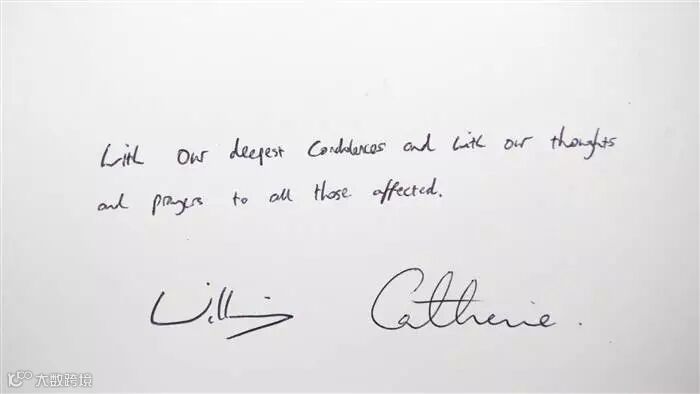 With our deepest condolences and with our thoughts
and prayers to all those affected.
William Catherine.
大数跨境